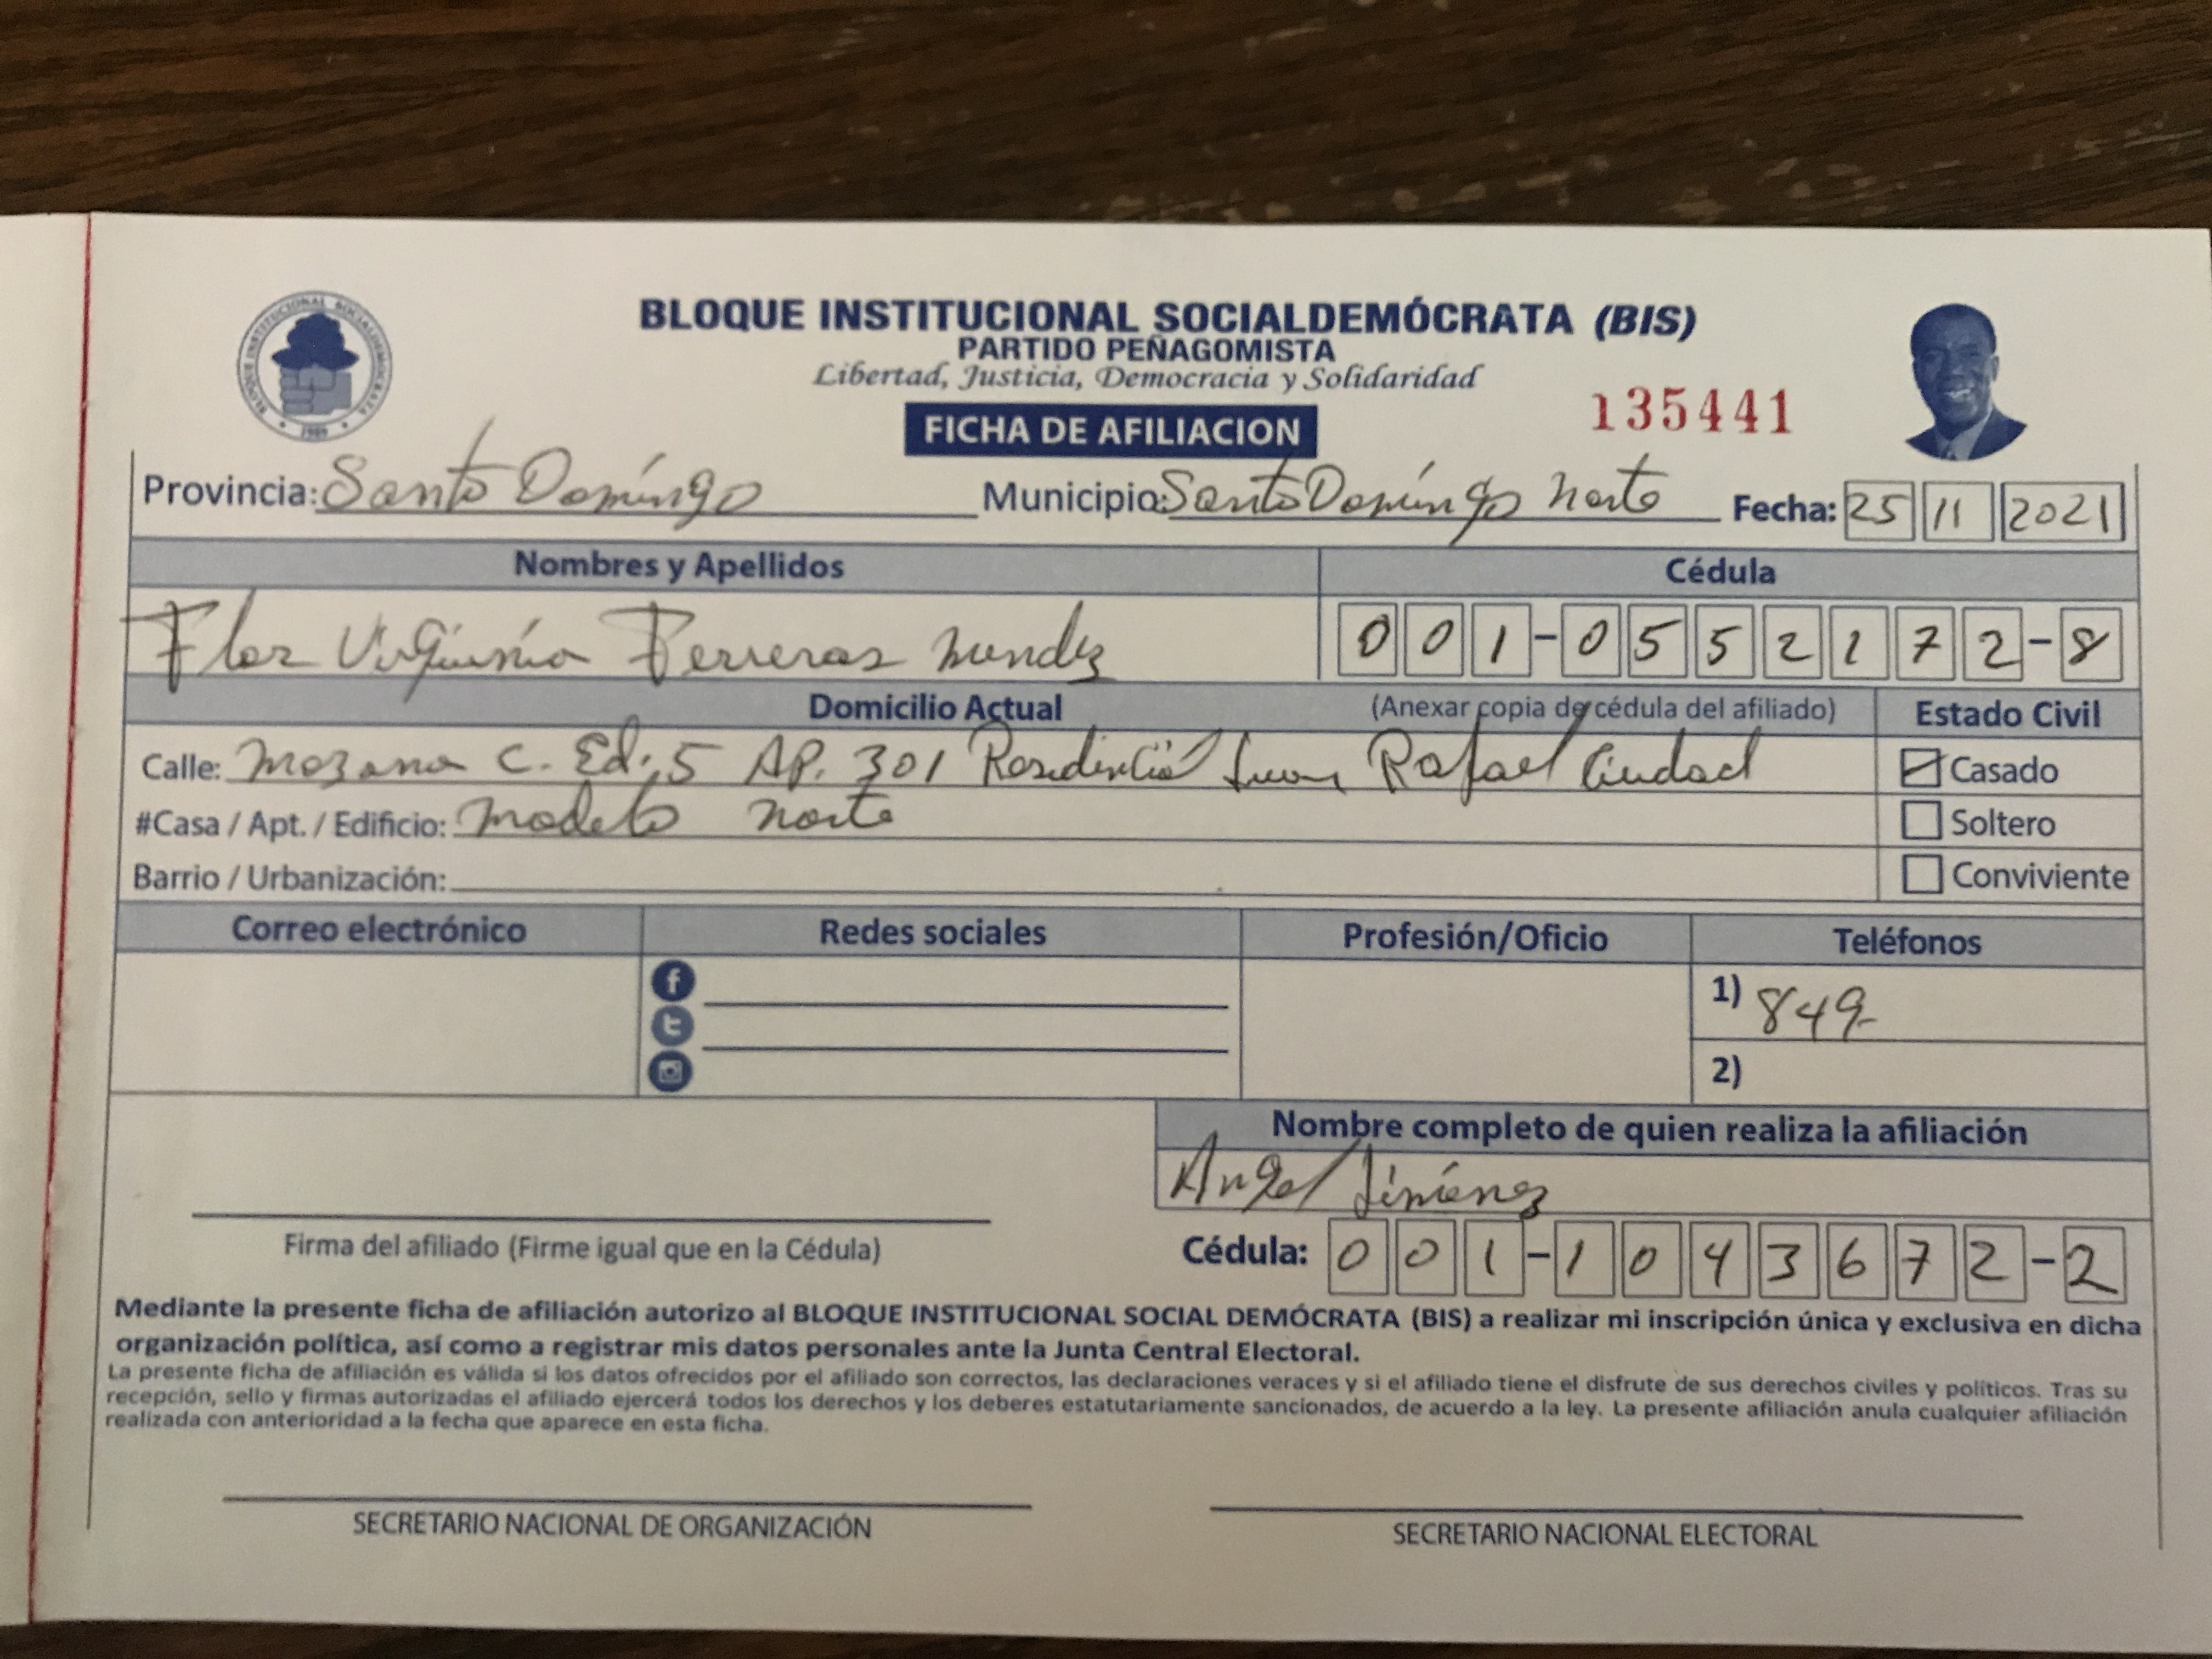 BLOQUE INSTITUCIONAL SOCIALDEMÓCRATA (BIS)
PARTIDO PEÑAGOMISTA
Libertad, Justicia, Democracia y Solidaridad
BLOQUE INSTITUCIONAL SOCIALDEMOCRATA
1989
FICHA DE AFILIACION
135441
Provincia: Santo Domingo Municipio: Santo Domingo Norte Fecha: 25 11 2021
Nombres y Apellidos Cédula
Flor Virginia Ferreras Mendez 001-0552172-8
Domicilio Actual (Anexar copia de cédula del afiliado) Estado Civil
Calle: Mozana C. Ed. 5 AP. 301 Residencial Rafael Ciudad Casado
#Casa / Apt. / Edificio: Modelo Norte Soltero
Barrio / Urbanización: Conviviente
Correo electrónico Redes sociales Profesión/Oficio Teléfonos
1) 849-
2)
Nombre completo de quien realiza la afiliación
Angel Jiménez
Firma del afiliado (Firme igual que en la Cédula) Cédula: 001-1043672-2
Mediante la presente ficha de afiliación autorizo al BLOQUE INSTITUCIONAL SOCIAL DEMÓCRATA (BIS) a realizar mi inscripción única y exclusiva en dicha
organización política, así como a registrar mis datos personales ante la Junta Central Electoral.
La presente ficha de afiliación es válida si los datos ofrecidos por el afiliado son correctos, las declaraciones veraces y si el afiliado tiene el disfrute de sus derechos civiles y políticos. Tras su
recepción, sello y firmas autorizadas el afiliado ejercerá todos los derechos y los deberes estatutariamente sancionados, de acuerdo a la ley. La presente afiliación anula cualquier afiliación
realizada con anterioridad a la fecha que aparece en esta ficha.
SECRETARIO NACIONAL DE ORGANIZACIÓN SECRETARIO NACIONAL ELECTORAL